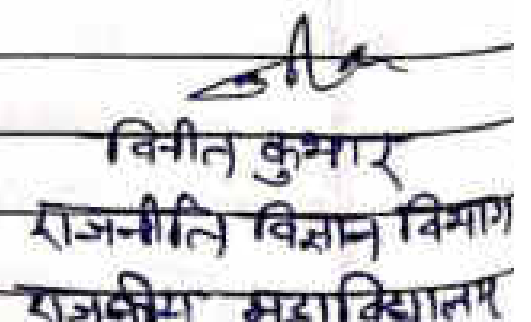 विनीत कुमार
राजनीति विज्ञान विभाग
राजकीय महाविद्यालय